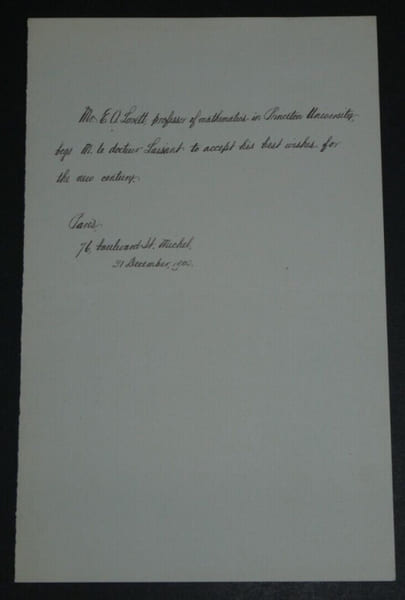 Mr. E. O. Lovett, professor of mathematics in Princeton University,
begs M. le docteur Laisant to accept his best wishes for
the new century.
Paris
76, boulevard St. Michel,
31 December, 1900.